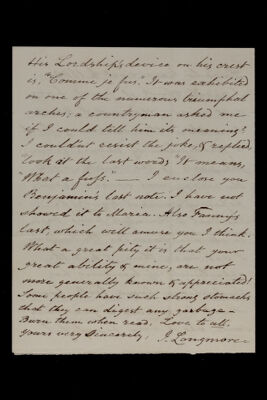 His Lordship's device on his crest
is, "Comme je fus". It was exhibited
on one of the numerous triumphal
arches; a countryman asked me
if I could tell him its meaning?
I couldn't resist the joke, & replied,
look at the last words "It means,
What a fuss." — I enclose you
Benjamin's last note. I have not
showed it to Maria. Also Fanny's
last, which will amuse you I think.
What a great pity it is that your
great ability & mine, are not
more generally known & appreciated!
Some people have such strong stomachs
that they can digest any garbage —
Burn them when read. Love to all.
Yours very Sincerely, J. Longmore